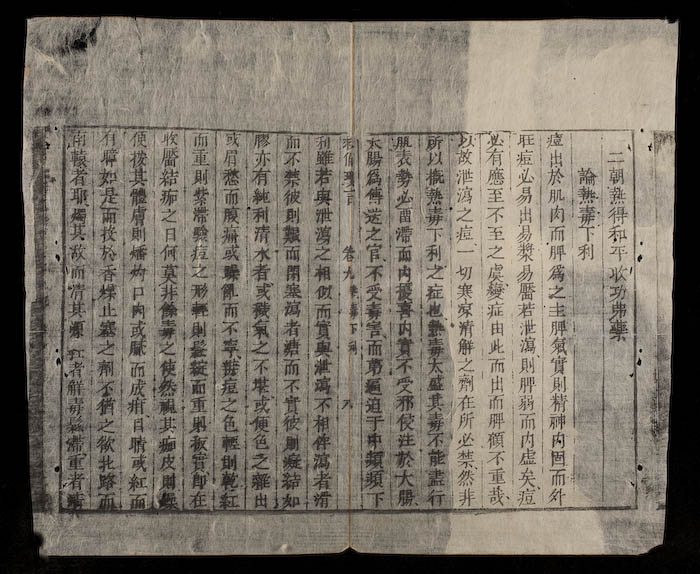 二朝熱得和平收功弗藥
論熱毒下利
痘出於肌肉而脾為之主脾氣實則精神內固而外
旺痘必易出易漿易靨若泄瀉則脾弱而內虛矣痘
必有應至不至之虞變症由此而出而脾顧不重哉
以故泄瀉之痘一切寒涼清解之劑在所必禁然非
所以概熱毒下利之症也熱毒太盛其毒不能盡行
肌表勢必留滯而內擾喜內實不受邪侵注於大腸
大腸為傳送之官不受毒害而旁通迫于中頻頻下
卷九 熱毒下利 八
利雖若與泄瀉之相似而實與泄瀉不相侔瀉者滑
而不禁彼則艱而閉塞瀉者溏而不實彼則凝結如
膠亦有純利清水者或穢氣之不堪或便色之雜出
或眉愁而腹痛或躁亂而不寧其痘之色輕則乾紅
而重則紫滯驗痘之形輕則鬆綻而重則板實即在
收靨結痂之日何莫非餘毒之使然視其痂皮則
使拔其體膚則燔灼口內或 而成疳目睛或紅而
有障如是而投於香燥止塞之劑不猶之欲北路而
南轅者耶 其故而清其源紅者解毒鬆滯重者清